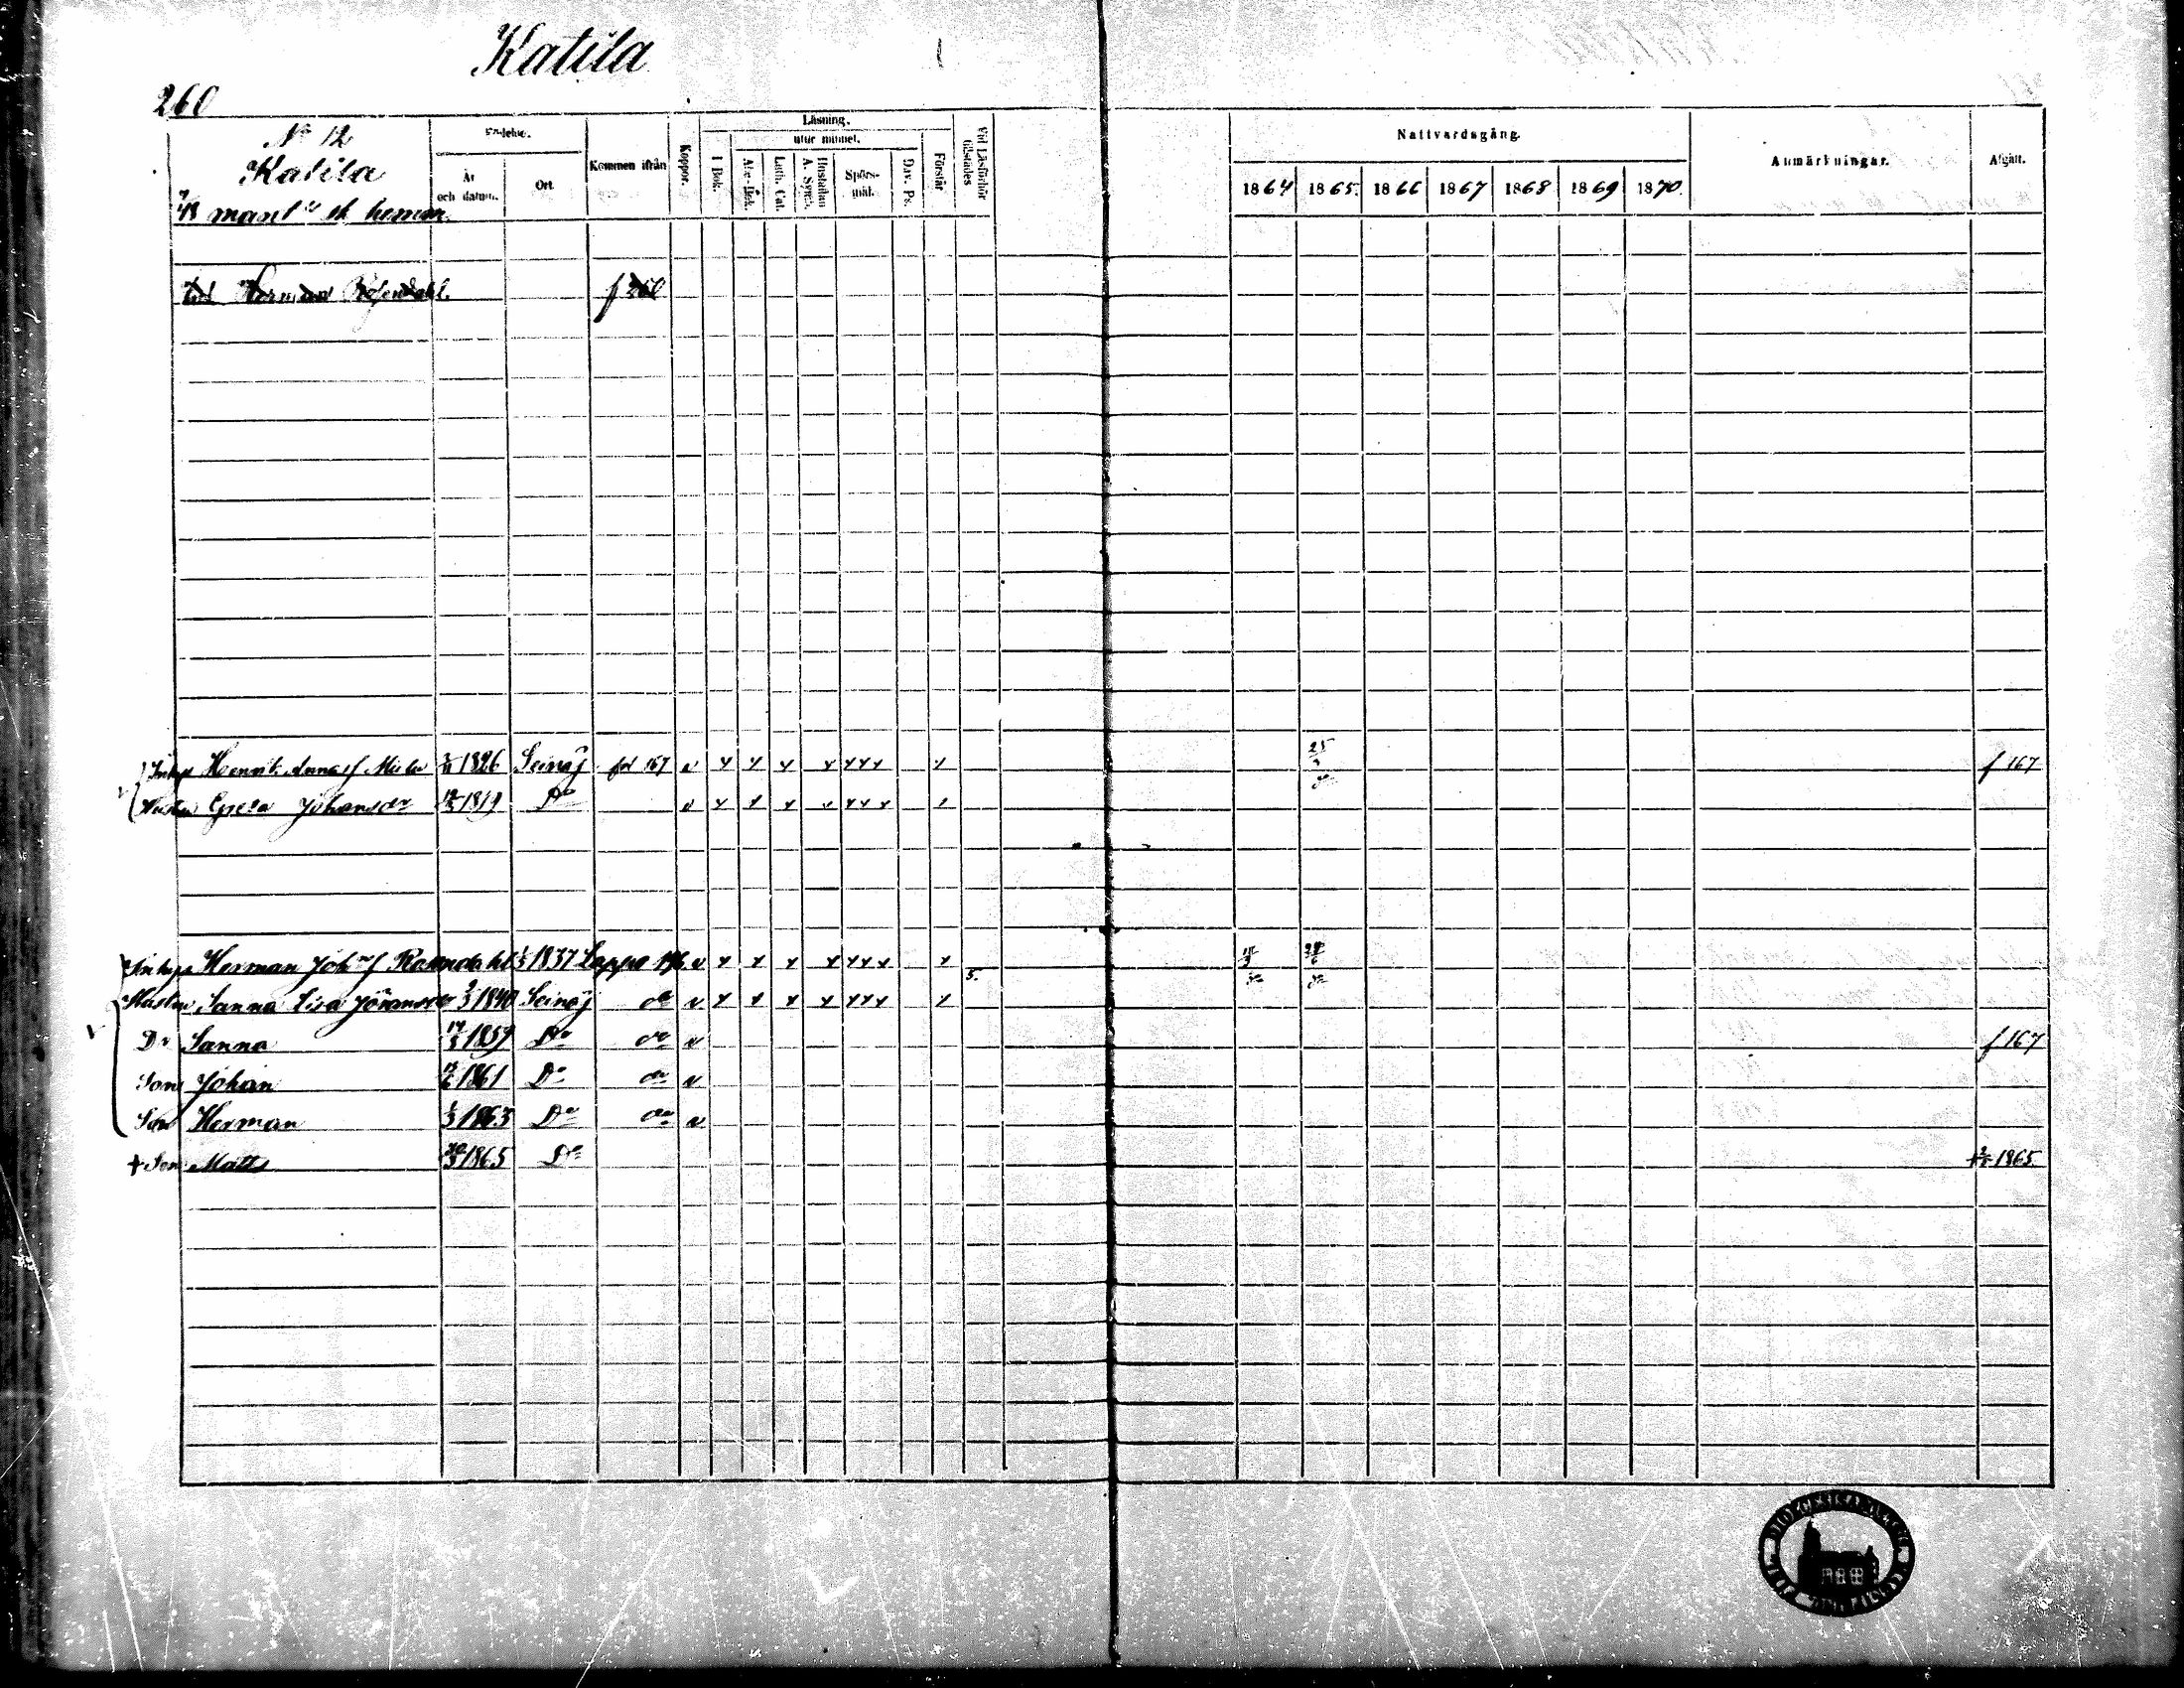 Katila
260
No 12
Katila
7/48 mantl sk hemm.
Födelse.
År och datum.
Ort
Kommen ifrån
Koppor.
Läsning.
I Bok.
utur minnet.
Abc-Bok.
Luth. Cat.
Hustaflan A. Symb.
Spörs-mål.
Dav. Ps.
Förstår
Vid Läsförhör tillstädes
Nattvardsgång.
1864 1865. 1866 1867 1868 1869 1870.
Anmärkningar.
Afgått.
Herman Rosendahl.
Inhys Henrik 1826 Seinäj fol 167 v x x x x x x x x 25 f 167
Hustru Greta Johansdr 1819 Do v x x x v x x x x
Inhys Herman Joh Rosendahl 1837 Lappo 196 v x x x x x x x x 5.
Hustru Sanna Lisa 1840 Seinäj do v x x x x x x x x
Dr Sanna 1859 Do do v f 167
Son Johan 1861 Do do v
Son Herman 1863 Do do v
+ Son Matts 1865 Do + 1865.